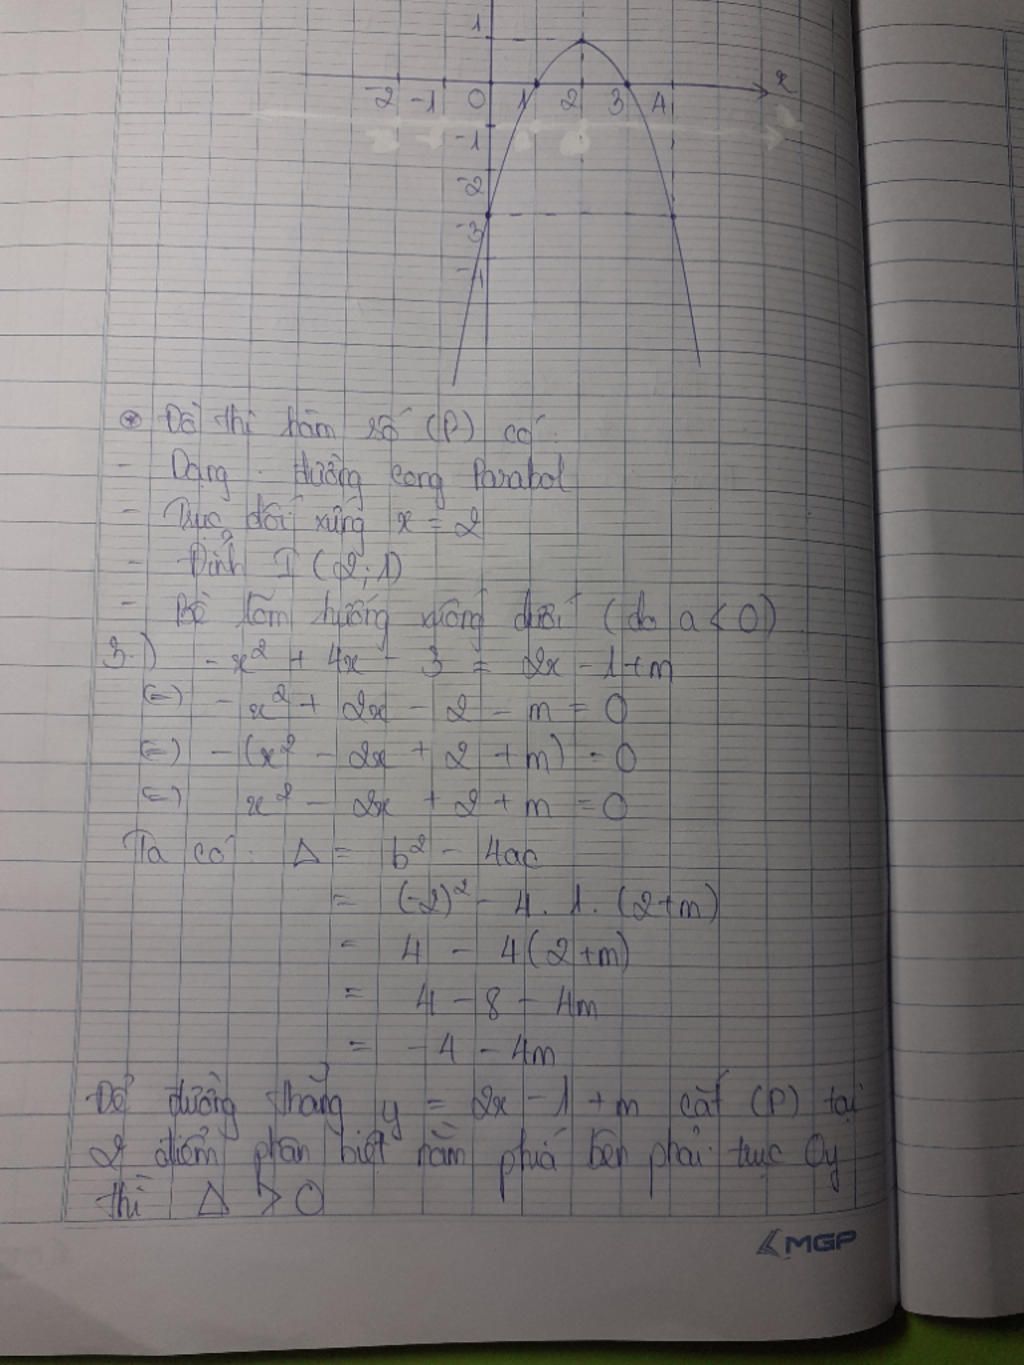 1
x
-2 -1 0 1 2 3 4
-1
-2
-3
-4
⊛ Đồ thị hàm số (P) có:
- Dạng: đường cong Parabol
- Trục đối xứng x = 2
- Đỉnh I (2; 1)
- Bề lõm hướng xuống dưới (do a < 0)
3.) -x² + 4x - 3 = 2x - 1 + m
(=) -x² + 2x - 2 - m = 0
(=) -(x² - 2x + 2 + m) = 0
(=) x² - 2x + 2 + m = 0
Ta có: Δ = b² - 4ac
= (-2)² - 4 . 1 . (2 + m)
= 4 - 4(2 + m)
= 4 - 8 - 4m
= -4 - 4m
Để đường thẳng y = 2x - 1 + m cắt (P) tại
2 điểm phân biệt nằm phía bên phải trục Oy
thì Δ > 0
MGP